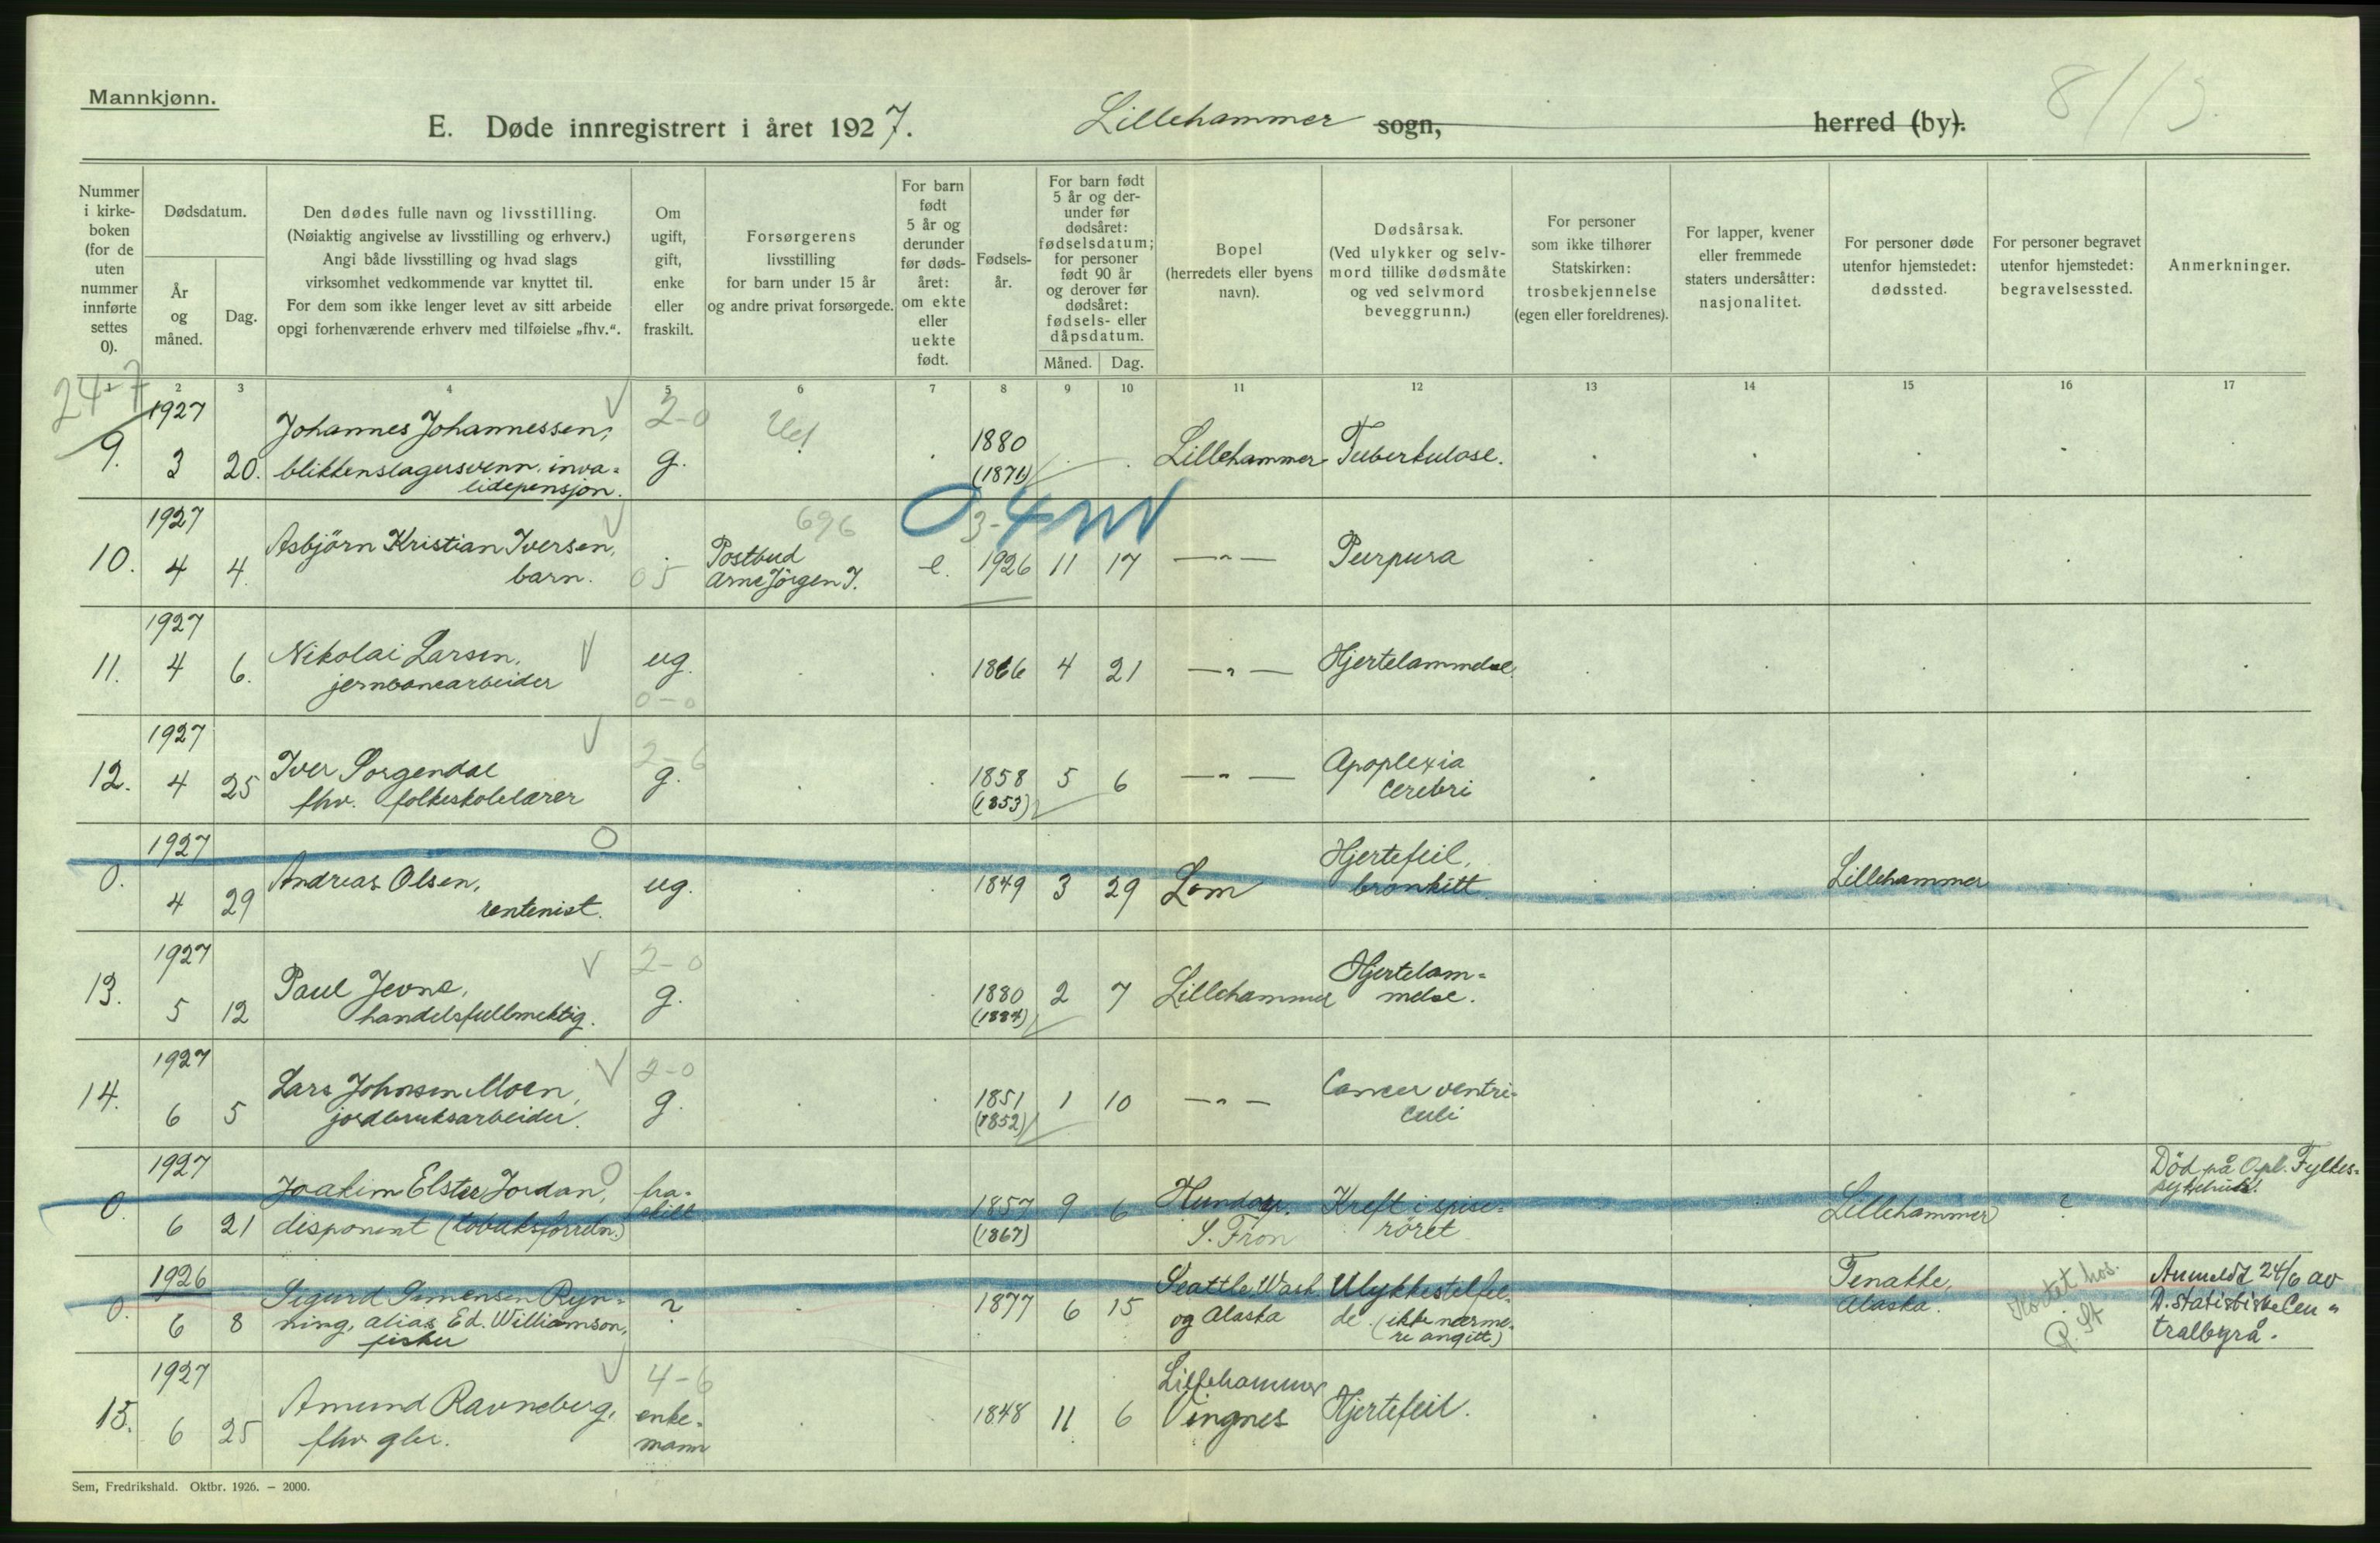 Mannkjønn.
E. Døde innregistrert i året 1927.
Lillehammer sogn, herred (by).
Nummer i kirke-boken (for de uten nummer innførte settes 0).
Dødsdatum.
År og måned.
Dag.
Den dødes fulle navn og livsstilling.
(Nøiaktig angivelse av livsstilling og erhverv.)
Angi både livsstilling og hvad slags
virksomhet vedkommende var knyttet til.
For dem som ikke lenger levet av sitt arbeide
opgi forhenværende erhverv med tilføielse „fhv.“.
Om ugift, gift, enke eller fraskilt.
Forsørgerens
livsstilling
for barn under 15 år
og andre privat forsørgede.
For barn født 5 år og derunder før døds-året: om ekte eller uekte født.
Fødsels-år.
For barn født 5 år og der-under før dødsåret: fødselsdatum; for personer født 90 år og derover før dødsåret: fødsels- eller dåpsdatum.
Måned. Dag.
Bopel
(herredets eller byens
navn).
Dødsårsak.
(Ved ulykker og selv-
mord tillike dødsmåte
og ved selvmord
beveggrunn.)
For personer
som ikke tilhører
Statskirken:
trosbekjennelse
(egen eller foreldrenes).
For lapper, kvener
eller fremmede
staters undersåtter:
nasjonalitet.
For personer døde
utenfor hjemstedet:
dødssted.
For personer begravet
utenfor hjemstedet:
begravelsessted.
Anmerkninger.
1 2 3 4 5 6 7 8 9 10 11 12 13 14 15 16 17
24-7
1927
9. 3 20. Johannes Johannessen,
blikkenslagersvenn. inva=
lidepensjon.
2-0
g. 1880
(1871) Lillehammer Tuberkulose.
1927
10. 4 4. Asbjörn Kristian Iversen,
barn. 05
696
Postbud
Arne Jörgen I. e. 1926 11 17 —"— Purpura
1927
11. 4 6. Nikolai Larsen,
jernbanearbeider ug.
0-0
1866 4 21 —"— Hjertelammelse
1927
12. 4 25 Iver Sorgendal
fhv. folkeskolelærer
2-6
g. 1858
(1853) 5 6 —"— Apoplexia
Cerebri
1927
0. 4 29 Andreas Olsen,
rentenist. ug. 1849 3 29 Lom Hjertefeil,
bronkitt Lillehammer
1927
13. 5 12 Paul Jevne,
handelsfullmektig.
2-0
g. 1880
(1884) 2 7 Lillehammer Hjertelam=
melse.
1927
14. 6 5 Lars Johnsen Moen,
jordbruksarbeider.
2-0
g. 1851
(1852) 1 10 —"— Cancer ventri-
culi
1927
0. 6 21 Joakim Elster Jordan,
disponent (tobakksforretn.) fra=
skilt 1857
(1867) 9 6 Hundorp.
S. Fron Kreft i spise=
röret Lillehammer ? Död på Opl. Fylkes=
sykehus!
1926
0. 6 8 Sigurd Simensen Ryn=
ning, alias Ed. Williamson,
fisker ? 1877 6 15 Seattle, Wash.
og Alaska Ulykkestilfel=
de (ikke nærme=
re angitt)
Alaska. Kortet hos. Anmeldt 24/6 av
D. statistiske Cen=
tralbyrå.
1927
15. 6 25 Amund Ravneberg,
fhv. gbr.
4-6
enke=
mann 1848 11 6 Lillehammer
Vingnes Hjertefeil.
Sem, Fredrikshald. Oktbr. 1926. – 2000.